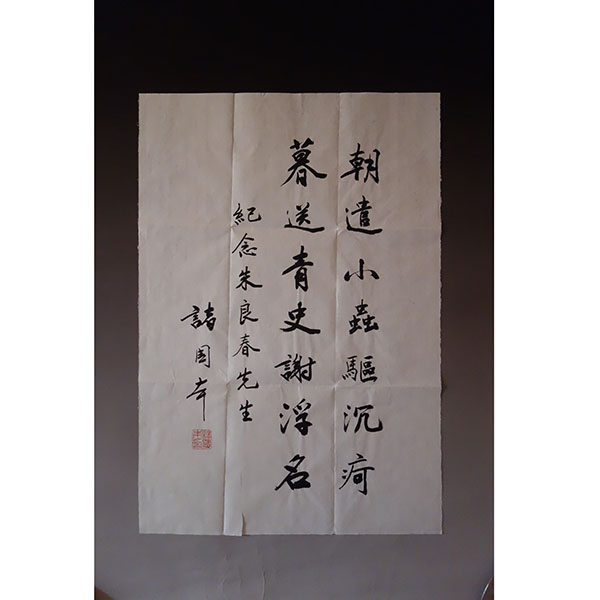 朝遣小蟲驅沉疴
暮送青史謝浮名
紀念朱良春先生
諸國本